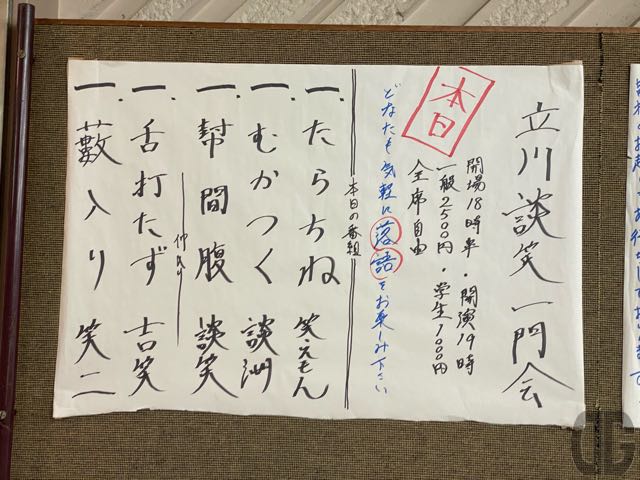 立川談笑一門会
本日
開場18時半・開演19時
一般2500円・学生1000円
全席自由
どなたも気軽に落語をお楽しみ下さい
本日の番組
一.たらちね 笑えもん
一.むかつく 談洲
一.幇間腹 談笑
仲入り
一.舌打たず 吉笑
一.藪入り 笑二